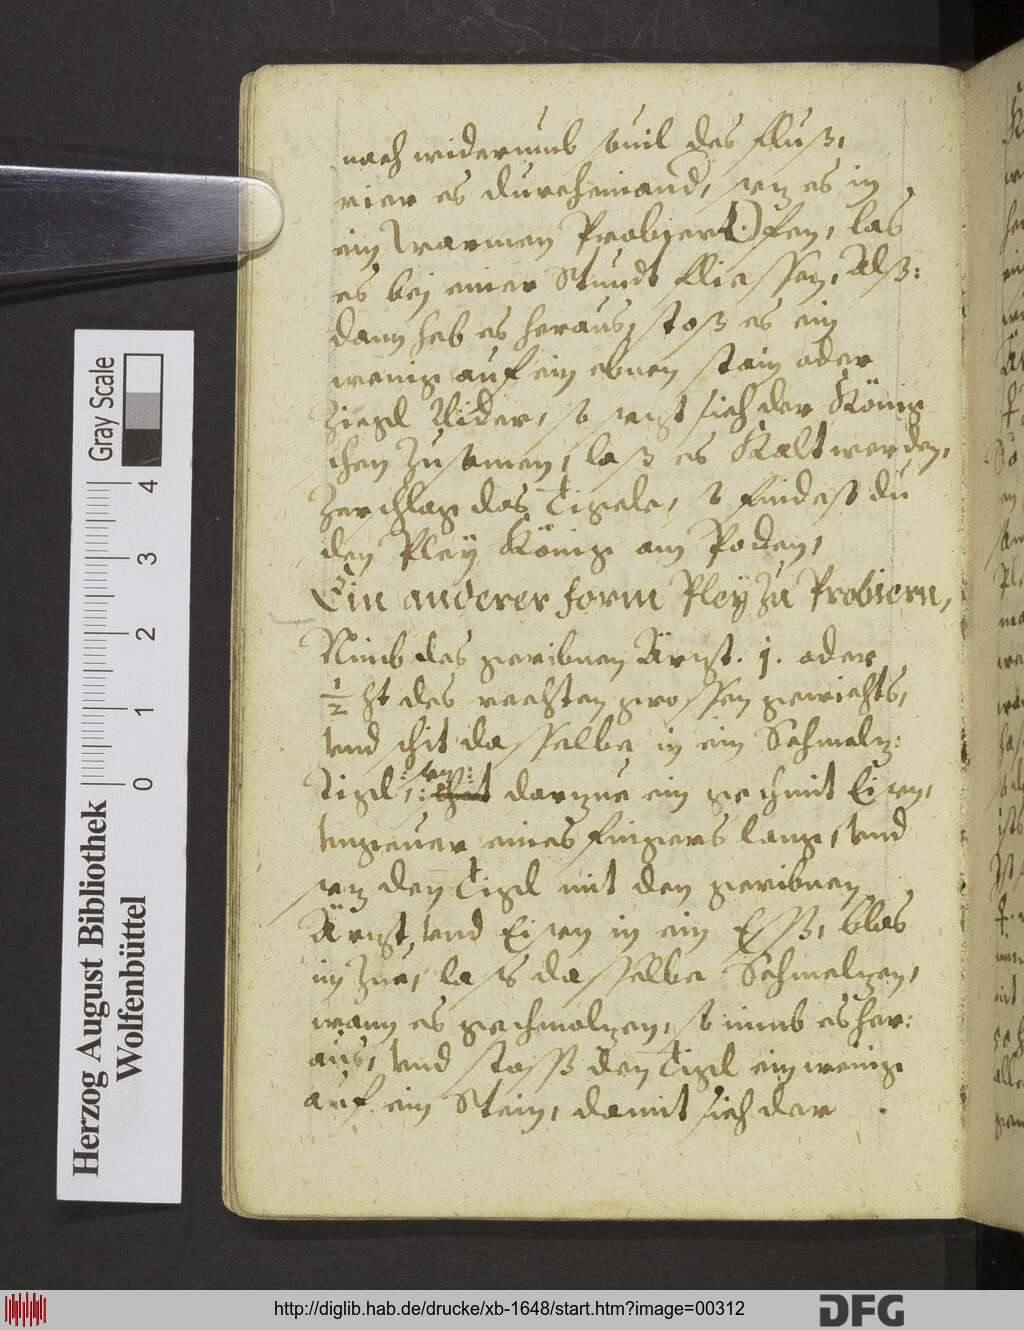 nach widerumb souil des fluß,
rier es durcheinand, setz es in
ein warmen Probier Ofen, las
es bej einer Stundt fliessen, Alß:
dann heb es heraus, stoß es ein
wenig auf ein ebnen stain oder
Ziegl Nider, so setzt sich der König
chen Zusamen, laß es Kalt werden,
Zerschlag das Tigele, so findest du
den Pley König am Poden,
Ein anderer form Pley Zu Probiern,
Nimb des geribnen Ärtzt. j. oder
½ ht des rechten grossen gewichts,
vnd schit dasselbe in ein Schmeltz:
Tigl, :setz: darzue ein geschmit Eisen,
vngeuer eines fingers lang, vnd
setz den Tigl mit den geribnen
Ärtzt, vnd Eisen in ein Eß, blas
im Zue, lass dasselbe Schmeltzen,
wann es geschmoltzen, so nimb es her:
aus, vnd stoss den Tigl ein wenig
auf ein Stein, damit sich der
Gray Scale
4
3
2
1
0
Herzog August Bibliothek
Wolfenbüttel
http://diglib.hab.de/drucke/xb-1648/start.htm?image=00312
DFG